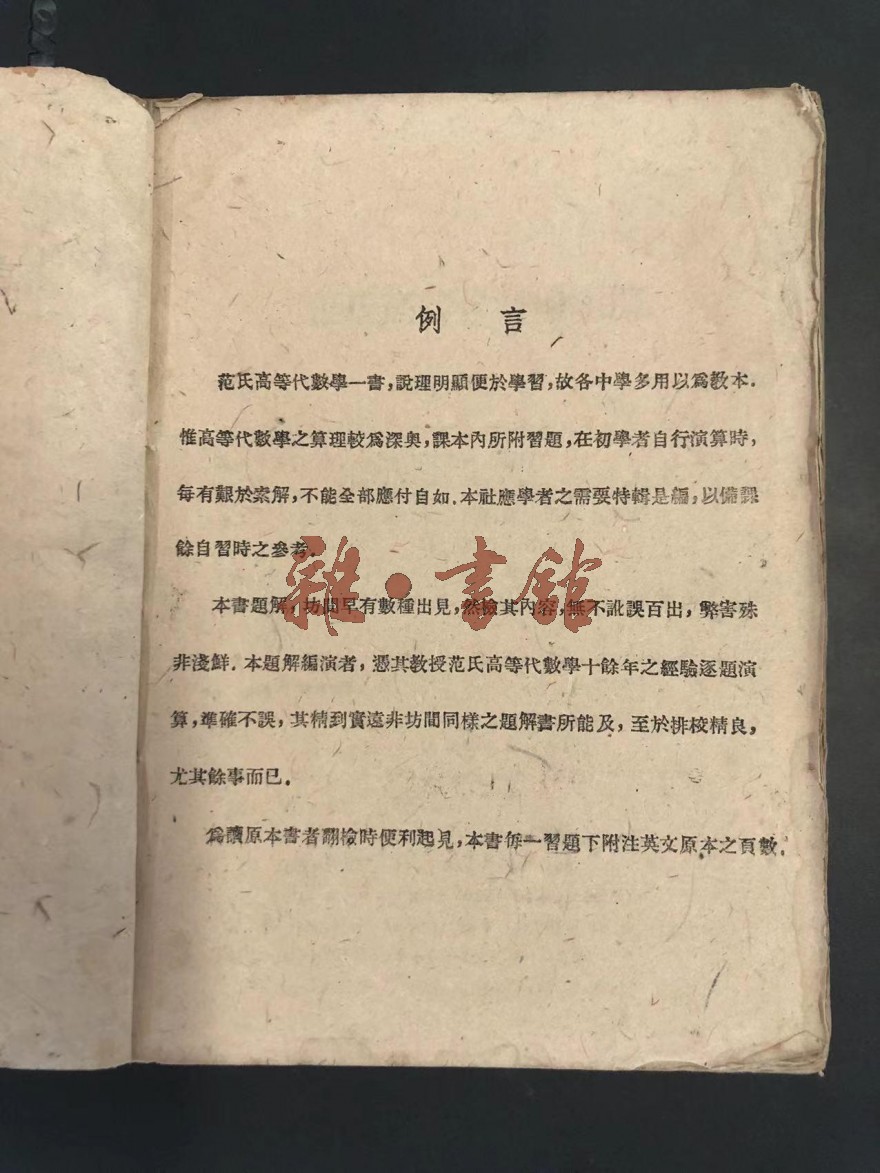 例言
范氏高等代數學一書，說理明顯便於學習，故各中學多用以爲敎本．
惟高等代數學之算理較爲深奥，課本內所附習題，在初學者自行演算時，
每有艱於索解，不能全部應付自如．本社應學者之需要特輯是編，以備課
餘自習時之參考．
雜·書館
本書題解，坊間早有數種出見，然檢其內容，無不訛誤百出，弊害殊
非淺鮮．本題解編演者，憑其敎授范氏高等代數學十餘年之經驗逐題演
算，準確不誤，其精到實遠非坊間同樣之題解書所能及，至於排校精良，
尤其餘事而已．
爲讀原本書者翻檢時便利起見，本書每一習題下附注英文原本之頁數．